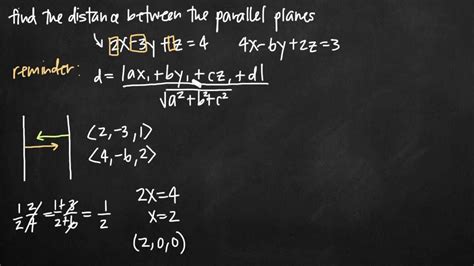 find the distance between the parallel planes
2x-3y+z=4 4x-6y+2z=3
reminder: d= |ax₁+by₁+cz₁+d| / √a²+b²+c²
⟨2,-3,1⟩
⟨4,-6,2⟩
1/2 2/4 = 1+3/2+6 = 1/2
2x=4
x=2
(2,0,0)